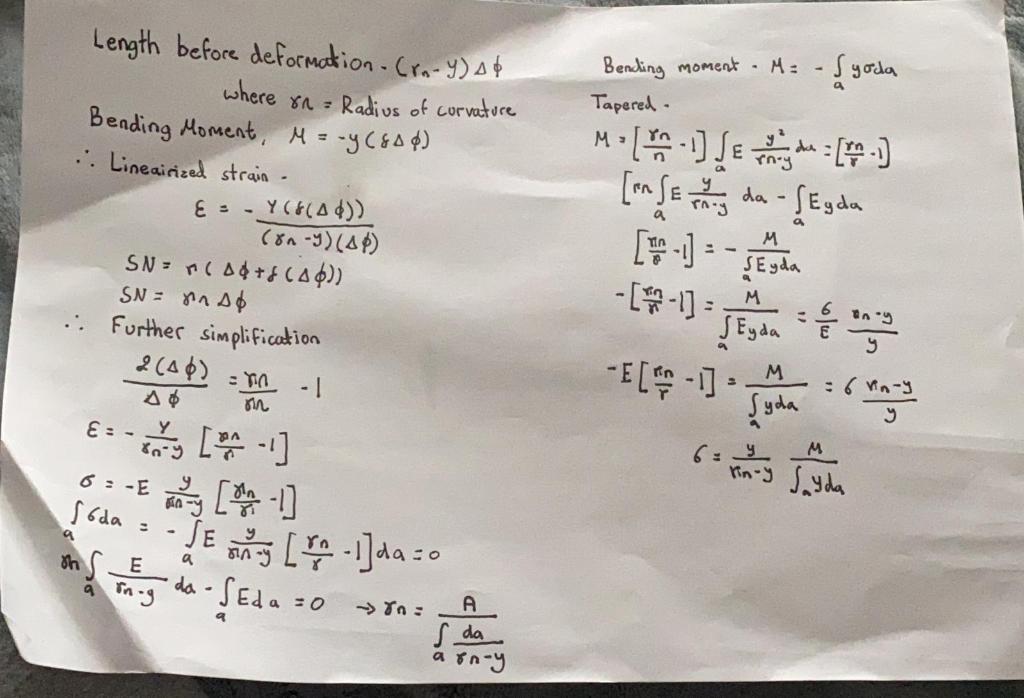 Length before deformation - (rn-y) Δϕ
where rn = Radius of curvature
Bending Moment, M = -y (δΔϕ)
∴ Lineairized strain -
ε = - Y(δ(Δϕ)) / (rn-y)(Δϕ)
SN = r(Δϕ+δ(Δϕ))
SN = rn Δϕ
∴ Further simplification
2(Δϕ) / Δϕ = rn / rn - 1
ε = - Y / rn-y [rn / r - 1]
σ = -E y / rn-y [rn / r - 1]
∫a σda = - ∫a E y / rn-y [rn / r - 1] da = 0
rn ∫a E / rn-y da - ∫a Eda = 0 → rn = A / ∫a da / rn-y
Bending moment - M = - ∫a yσda
Tapered -
M = [rn / n - 1] ∫a E y² / rn-y da = [rn / r - 1]
[rn ∫a E y / rn-y da - ∫a Eyda
[rn / r - 1] = - M / ∫a Eyda
-[rn / r - 1] = M / ∫a Eyda = σ / E rn-y / y
-E[rn / r - 1] = M / ∫a yda = σ rn-y / y
σ = y / rn-y M / ∫a yda